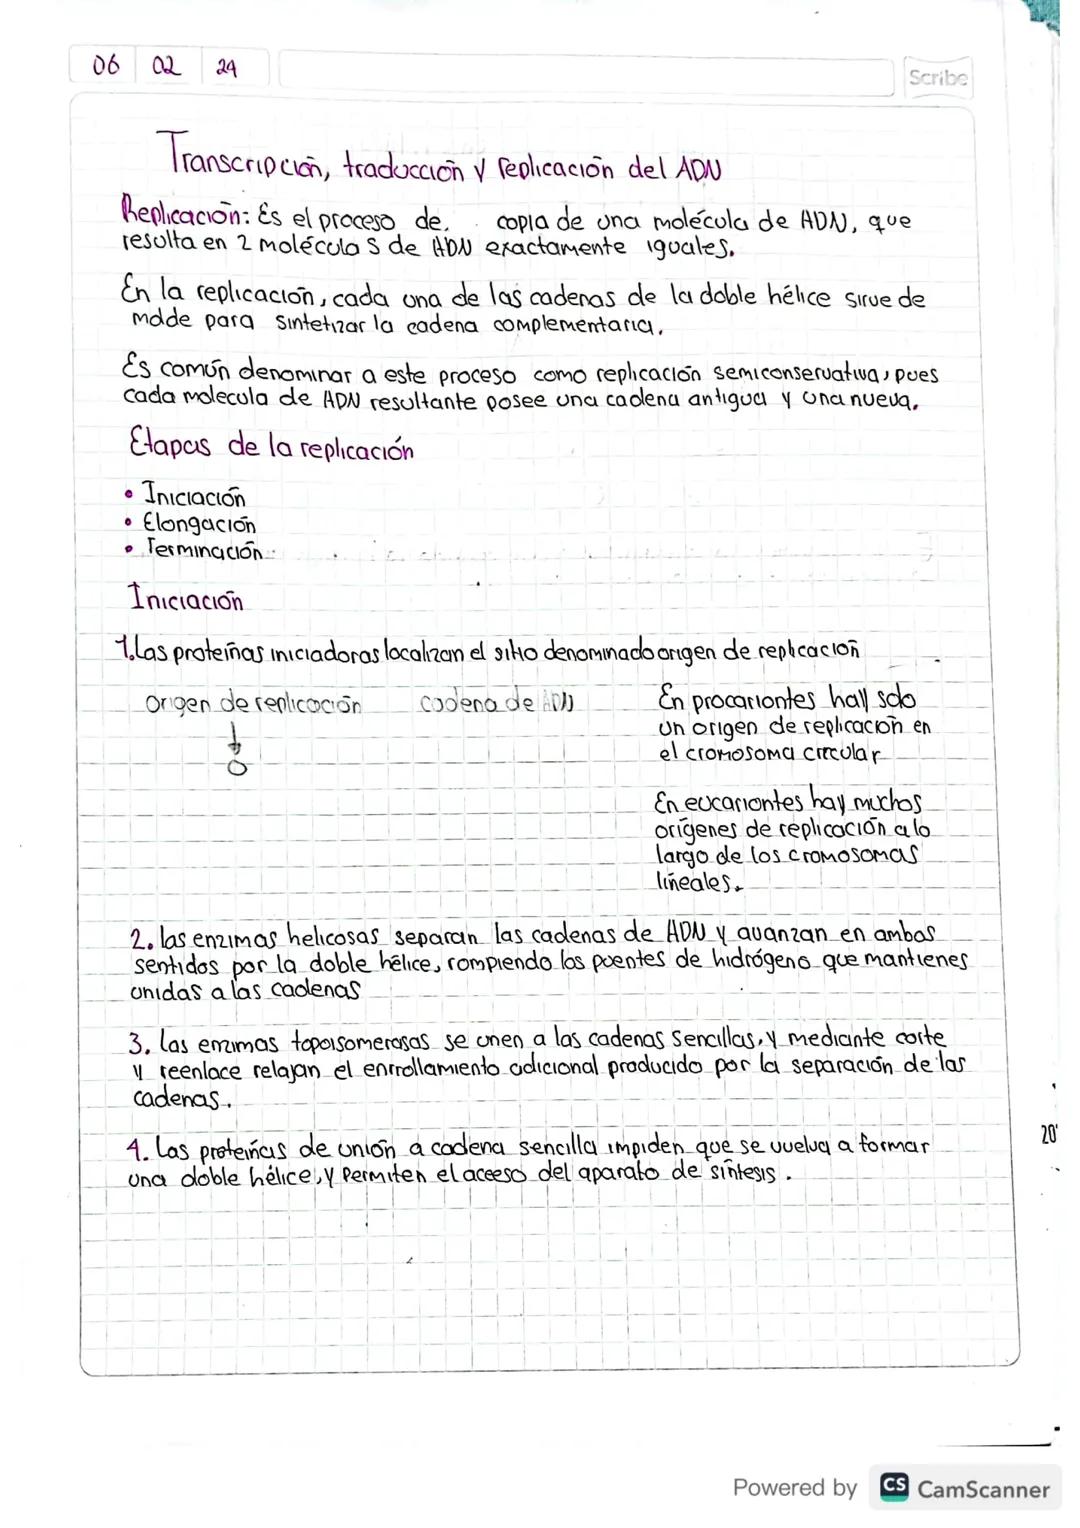 06 02 24
Scribe
Transcripción, traducción y replicación del ADN
Replicación: Es el proceso de. copia de una molécula de ADN, que
resulta en 2 moléculas de ADN exactamente iguales.
En la replicación, cada una de las cadenas de la doble hélice sirve de
molde para sintetizar la cadena complementaria.
Es común denominar a este proceso como replicación semiconservativa, pues
cada molecula de ADN resultante posee una cadena antigua y una nueva.
Etapas de la replicación
• Iniciación
• Elongación
• Terminación
Iniciación
1. Las proteínas iniciadoras localizan el sitio denominado origen de replicación
origen de replicación cadena de ADN
En procariontes hay solo
un origen de replicación en
el cromosoma circular
En eucariontes hay muchos
orígenes de replicación a lo
largo de los cromosomas
líneales.
2. las enzimas helicosas separan las cadenas de ADN y avanzan en ambos
sentidos por la doble hélice, rompiendo los puentes de hidrógeno que mantienes
unidas a las cadenas
3. las enzimas topoisomerasas se unen a las cadenas sencillas, y mediante corte
y reenlace relajan el enrrollamiento adicional producido por la separación de las
cadenas.
4. Las proteínas de unión a cadena sencilla impiden que se vuelva a formar
una doble hélice, y permiten el aceeso del aparato de síntesis.
20'
Powered by CS CamScanner